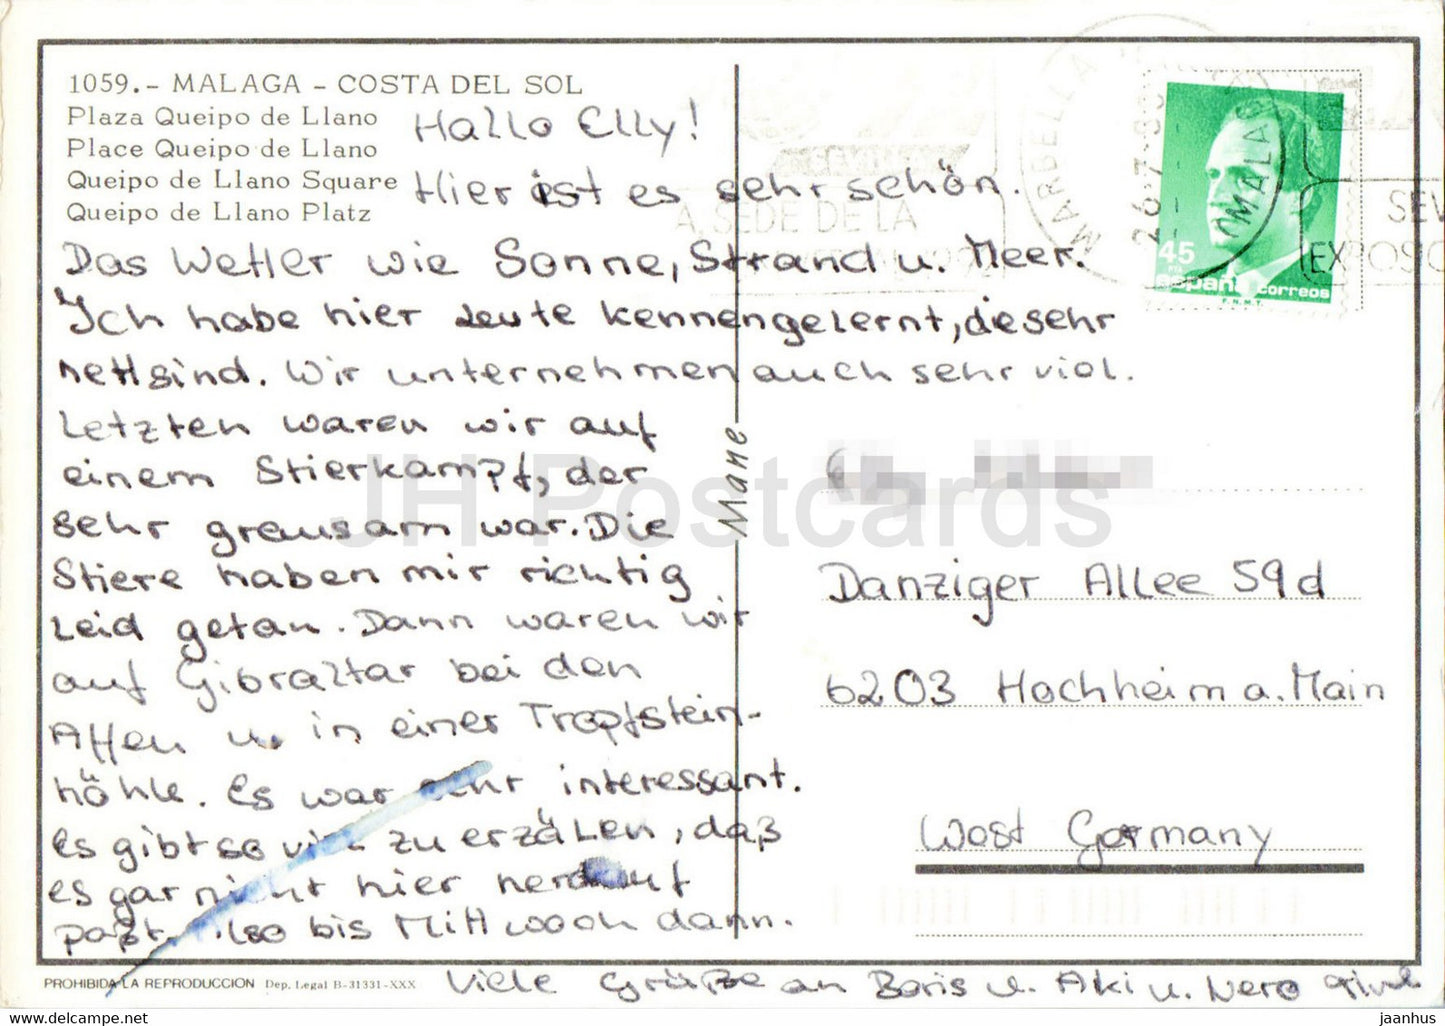 1059.- MALAGA - COSTA DEL SOL
Plaza Queipo de Llano
Place Queipo de Llano
Queipo de Llano Square
Queipo de Llano Platz
Hallo Elly!
Hier ist es sehr schön.
Das Wetter wie Sonne, Strand u. Meer.
Ich habe hier Leute kennengelernt, die sehr
nett sind. Wir unternehmen auch sehr viel.
Letzten waren wir auf
einem Stierkampf, der
sehr grausam war. Die
Stiere haben mir richtig
Leid getan. Dann waren wir
auf Gibraltar bei den
Affen u. in einer Tropfstein-
höhle. Es war sehr interessant.
Es gibt so viel zu erzälen, daß
es gar nicht hier herauf
paßt. Also bis Mittwoch dann.
Viele Grüße an Boris u. Aki u. Nero
PROHIBIDA LA REPRODUCCION Dep. Legal B-31331-XXX
Mane
MARBELLA
26-7-
(MALAGA)
A, SEDE DE LA
SEV
EXPOSIC
45
PTA
españa correos
F.N.M.T.
Danziger Allee 59d
6203 Hochheim a. Main
West Germany
JH Postcards
jaanhus www.delcampe.net